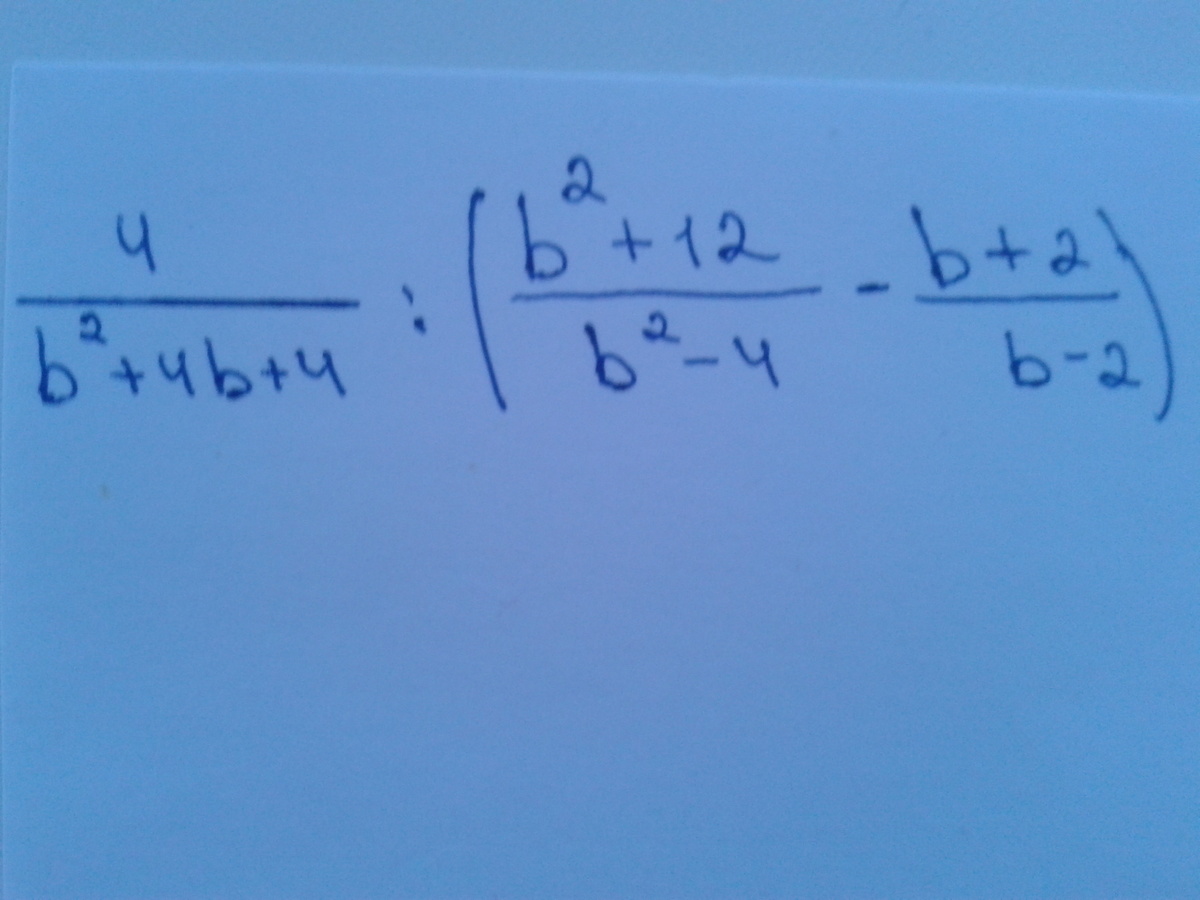 4/(b²+4b+4) : ((b²+12)/(b²-4) - (b+2)/(b-2))